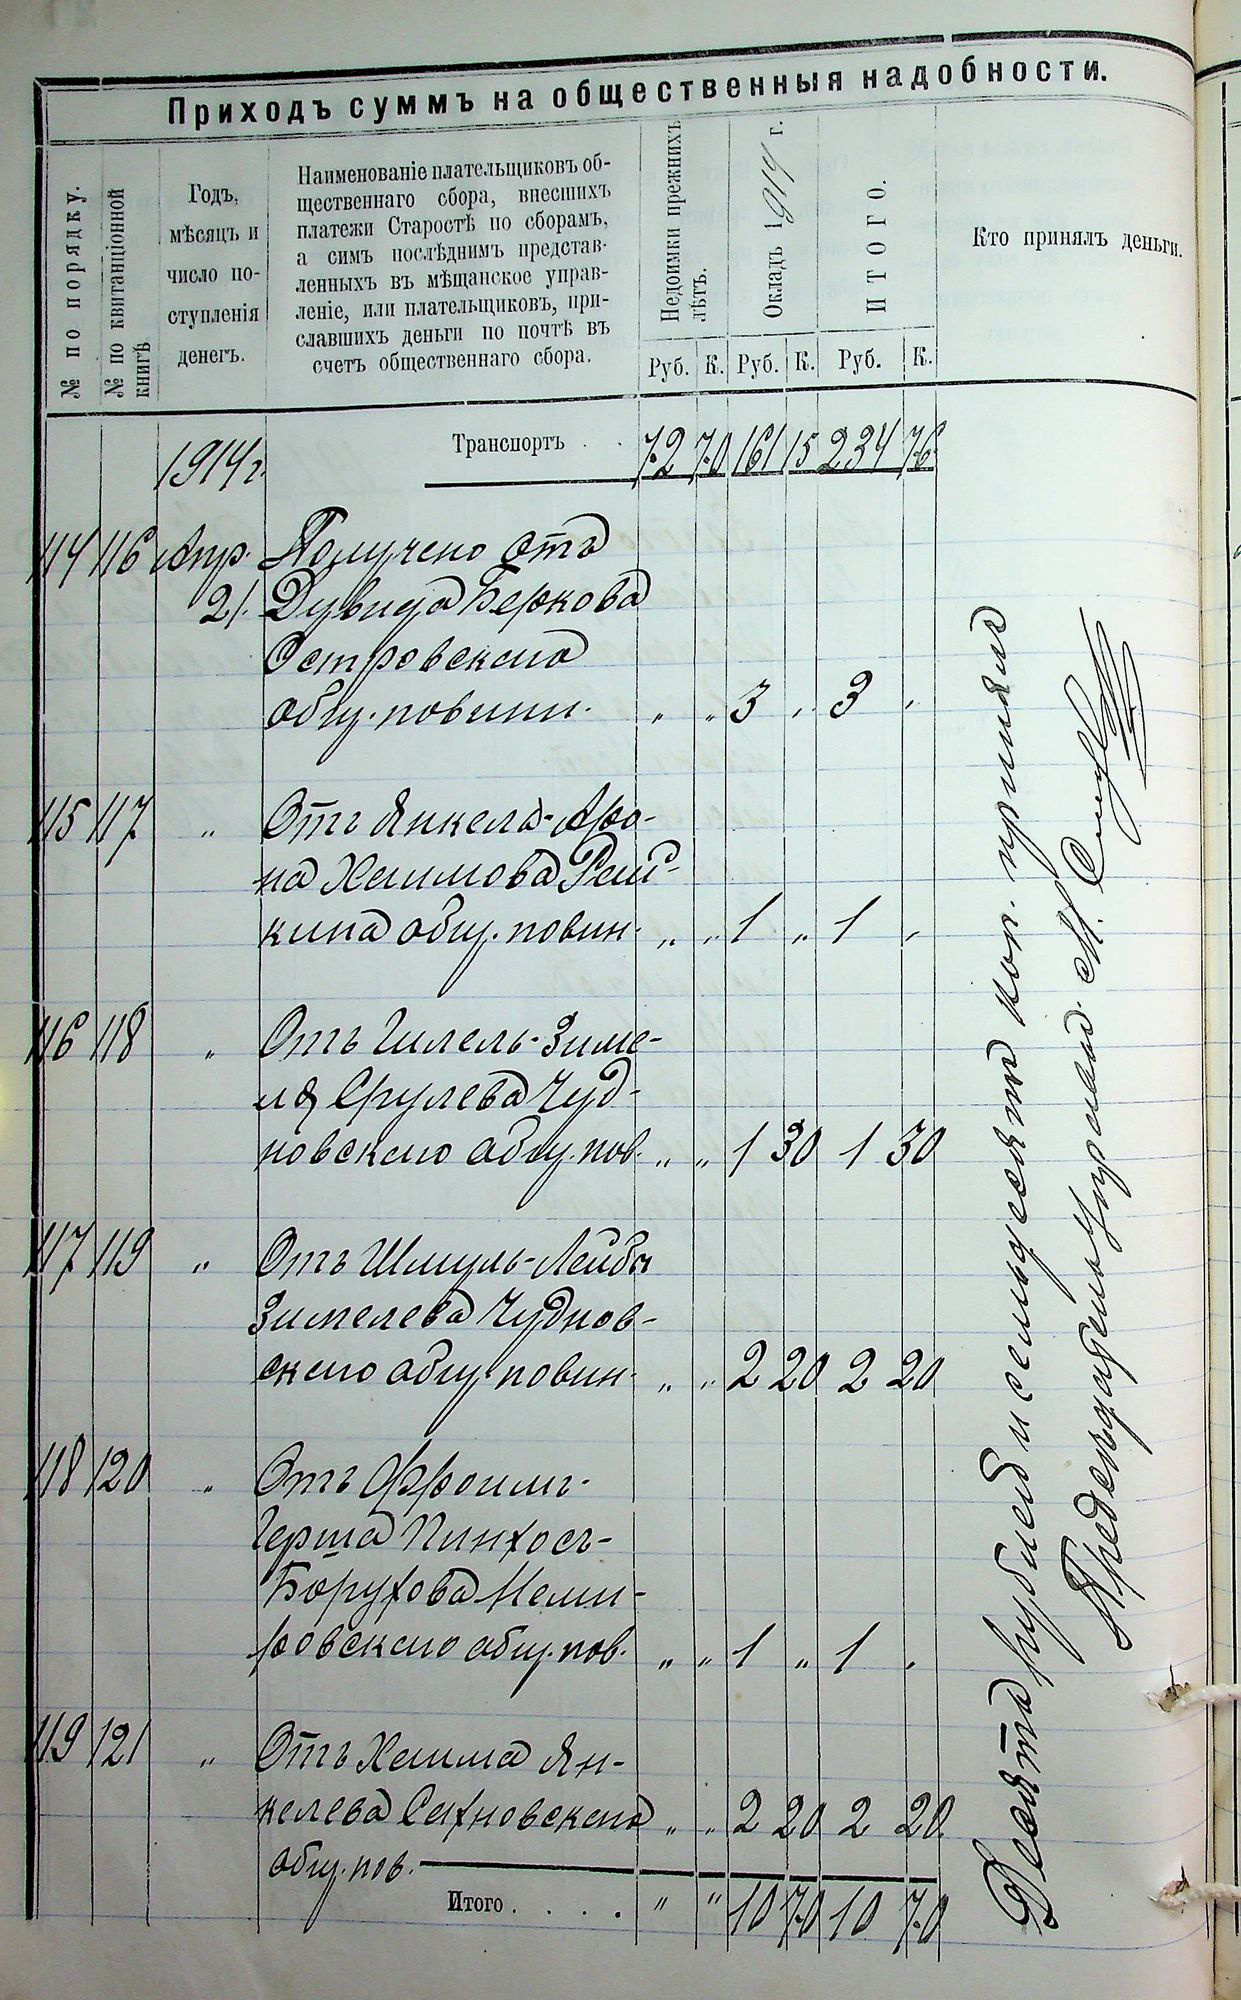 Приходъ суммъ на общественныя надобности.
№ по порядку.
№ по квитанціонной книгѣ
Годъ,
мѣсяцъ и
число по-
ступленія
денегъ.
Наименованіе плательщиковъ об-
щественнаго сбора, внесшихъ
платежи Старостѣ по сборамъ,
а симъ послѣднимъ представ-
ленныхъ въ мѣщанское управ-
леніе, или плательщиковъ, при-
славшихъ деньги по почтѣ въ
счетъ общественнаго сбора.
Недоимки прежнихъ
лѣтъ.
Окладъ 1914 г.
ИТОГО.
Кто принялъ деньги.
Руб. К. Руб. К. Руб. К.
1914 г. Транспортъ . . 72 70 161 15 234 76
114 116 Апр. Получено отъ
21. Дувида Беркова
Островскаго
общ. повинн. „ „ 3 „ 3 „
115 117 „ Отъ Янкеля-Аро-
на Хаимова Раш-
кина общ. повин. „ „ 1 „ 1 „
116 118 „ Отъ Гилель-Зиме-
ля Срулева Чуд-
новскаго общ. пов. „ „ 1 30 1 30
117 119 „ Отъ Шмуль-Лейбы
Зимелева Чуднов-
скаго общ. повин. „ „ 2 20 2 20
118 120 „ Отъ Фроимъ-
Герша Пинхосъ-
Борухова Неми-
ровскаго общ. пов. „ „ 1 „ 1 „
119 121 „ Отъ Хаима Ян-
келева Сахновскаго „ „ 2 20 2 20
общ. пов.
Итого . . . . „ „ 10 70 10 70
Десять рублей и семьдесятъ коп. принялъ
Предсѣдатель Управленія М.